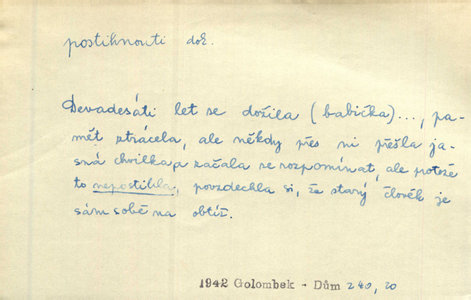 postihnouti dok.
Devadesáti let se dožila (babička)..., pa-
mět ztrácela, ale někdy přes ni přešla ja-
sná chvilka, a začala se rozpomínat, ale poteže
to nepostihla, povzdechla si, že starý člověk je
sám sobě na obtíž.
1942 Golombek - Dům 240, 20